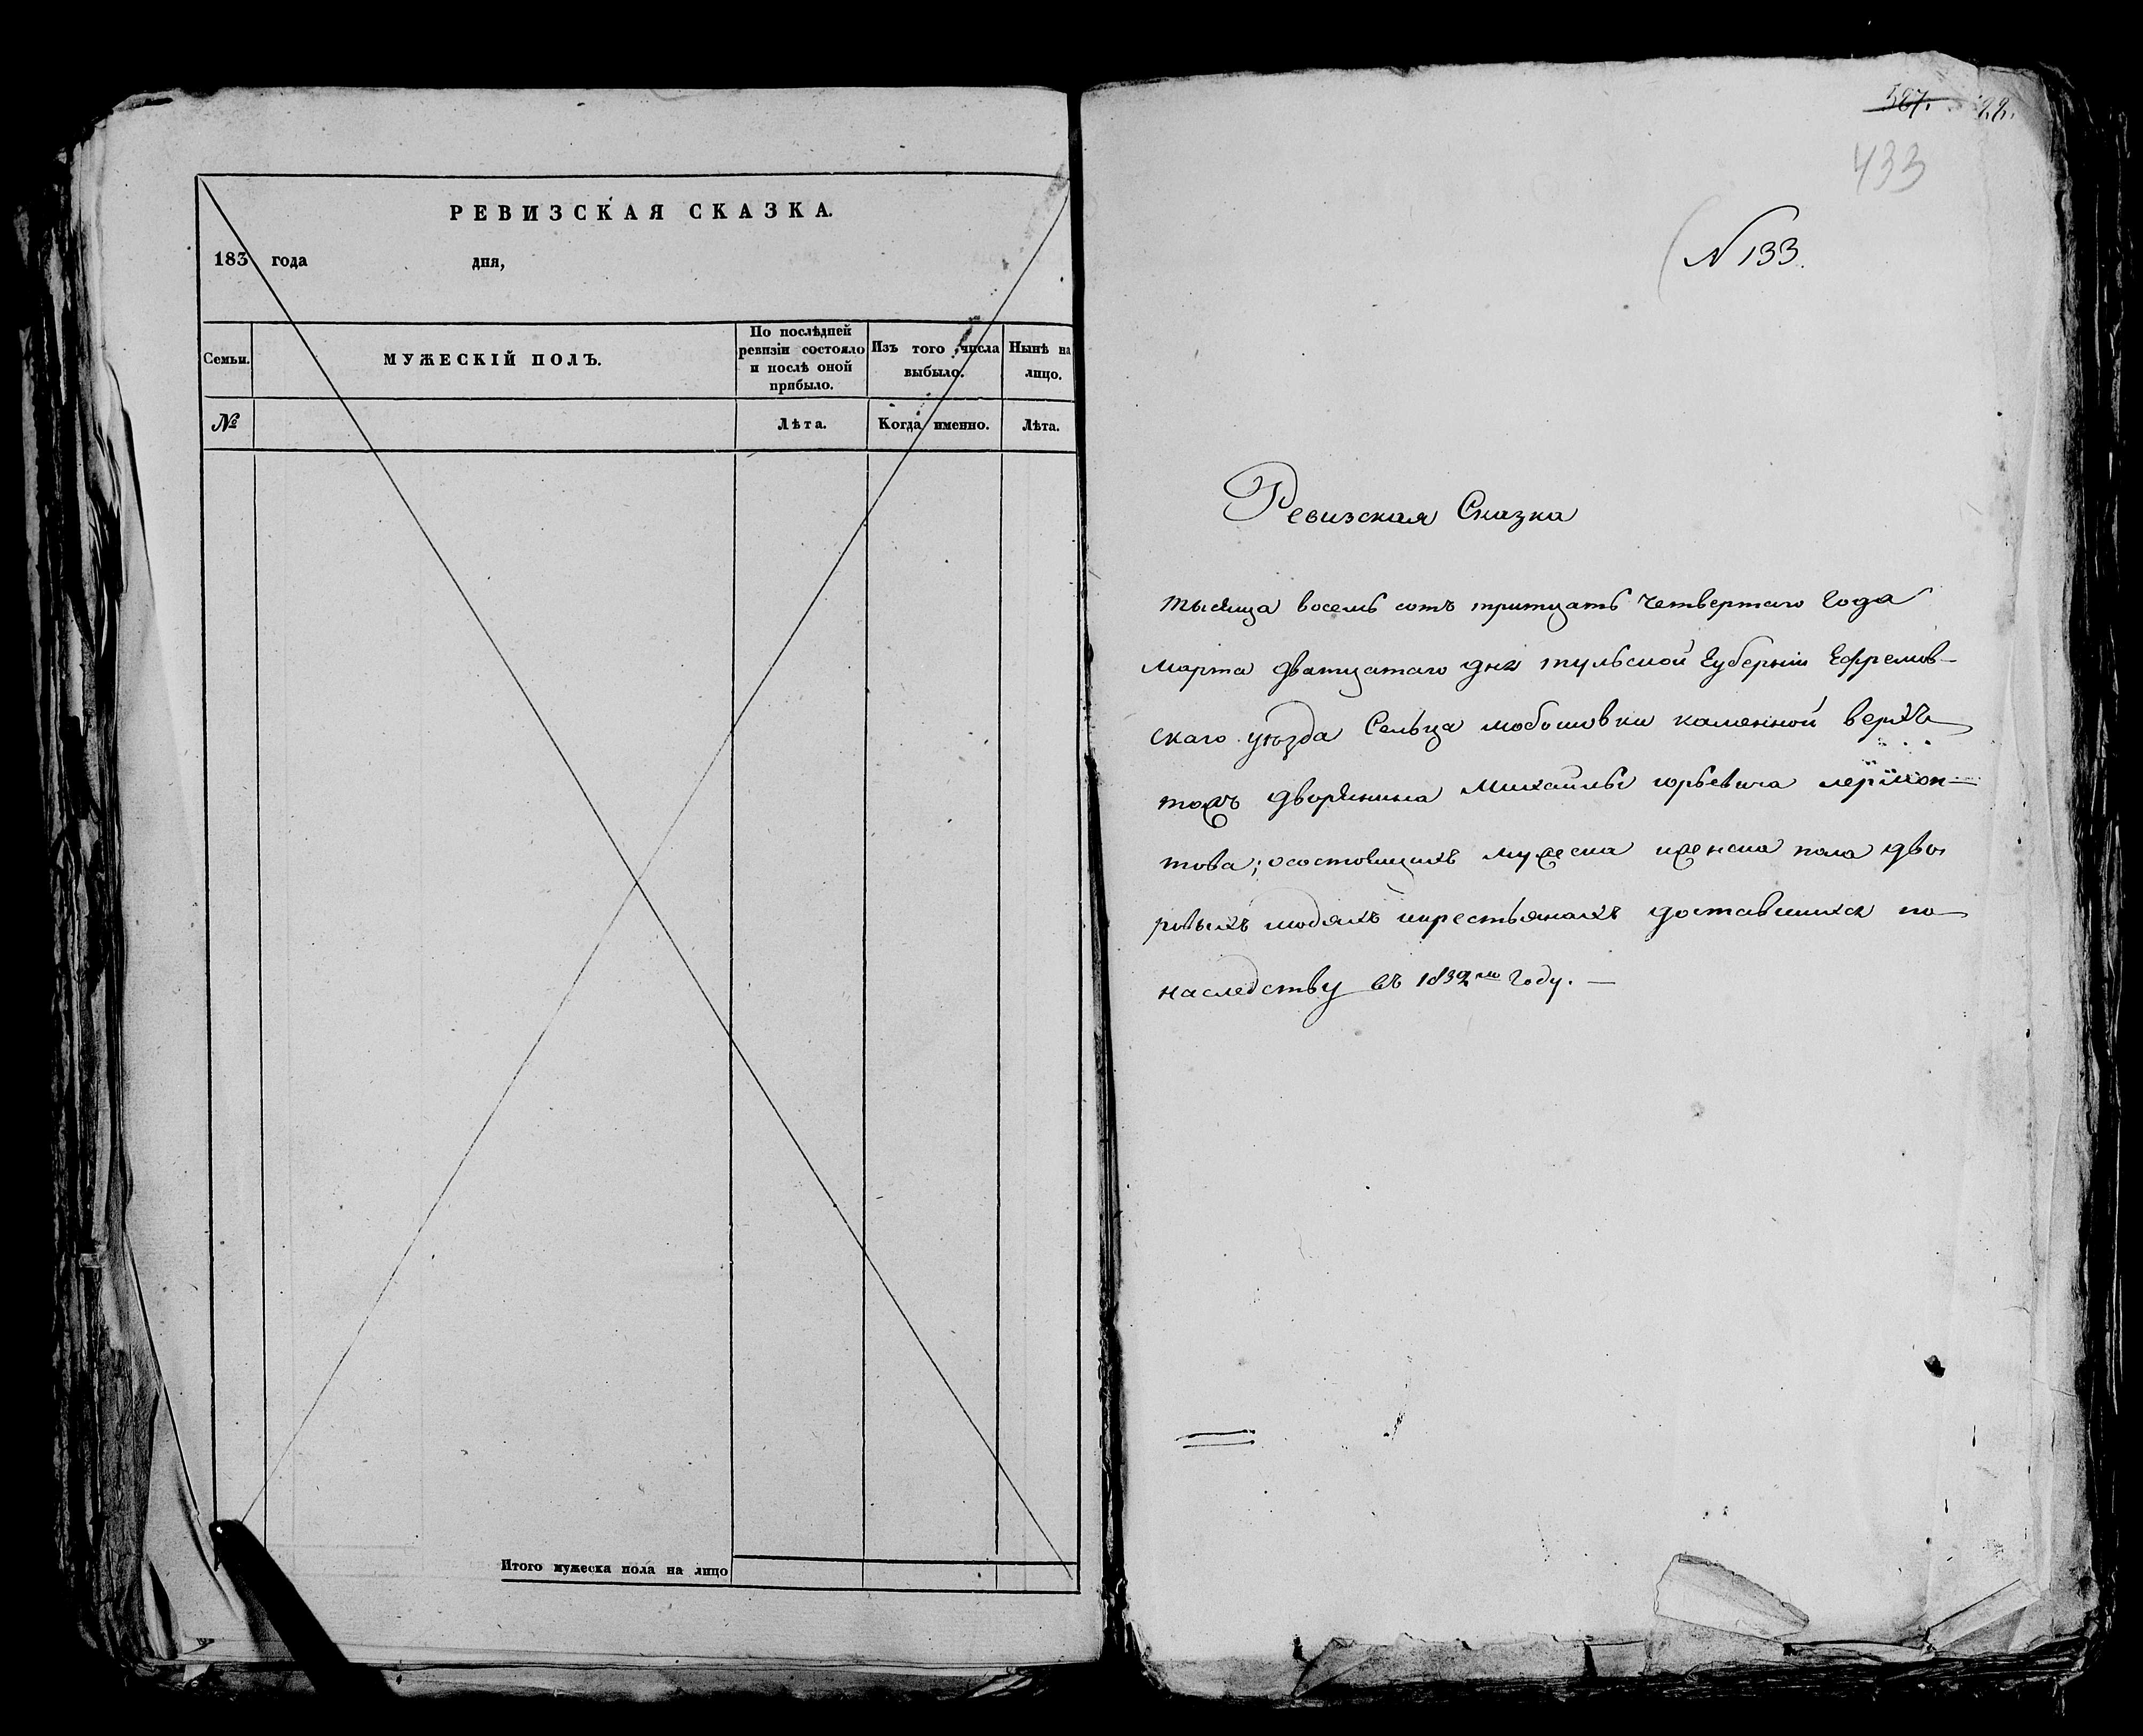 РЕВИЗСКАЯ СКАЗКА.
183 года дня,
Семьи.
МУЖЕСКІЙ ПОЛЪ.
По послѣдней
ревизіи состояло
и послѣ оной
прибыло.
Изъ того числа
выбыло.
Нынѣ на
лицо.
№
Лѣта.
Когда именно.
Лѣта.
Итого мужеска пола на лицо
587.
433
N 133.
Ревизская Сказка
тысяща восемь сотъ тритцать четвертаго года
марта дватцатаго дня тульской Губерніи Ефремов-
скаго уѣзда Сельца любашовки каменной верхъ
тожъ дворянина Михайлы юрьевича лермон-
това; осостоящихъ мужеска иженска пола дво
ровыхъ людяхъ икрестьянахъ доставшихся по
наследству въ 1832мъ Году. —